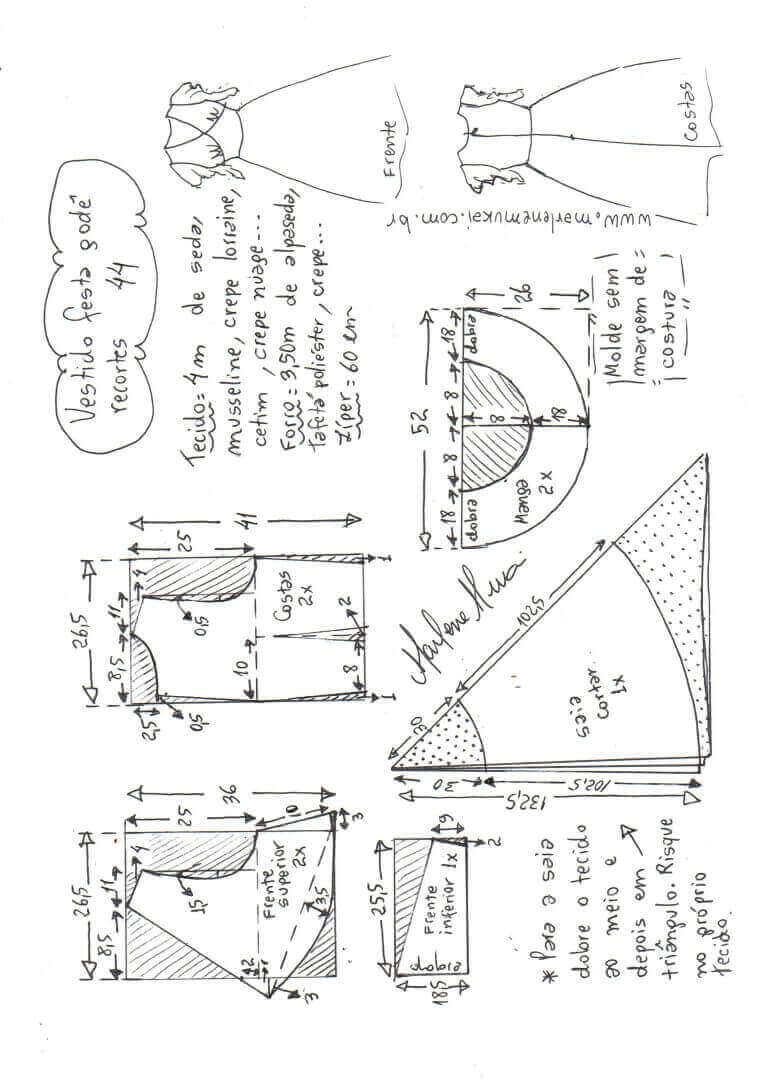 Vestido festa godê
recortes 44
Tecido = 4 m de seda,
musseline, crepe lorraine,
cetim, crepe nuage...
Forro = 3,50m de alpaseda,
tafetá poliéster, crepe...
Zíper = 60 cm
Frente
Costas
www.marlenemukai.com.br
Molde sem
margem de
costura
52
18
8
8
18
dobra
dobra
8
18
26
Manga
2x
26,5
8,5
11
4
2,5
0,5
0,5
25
41
10
8
2
1
1
Costas
2x
26,5
8,5
11
4
15
25
36
10
3
2
1
3,5
3
Frente
superior
2x
25,5
18,5
9
2
Frente
inferior 1x
dobra
30
102,5
30
102,5
132,5
saia
cortar
1x
* Para a saia
dobre o tecido
ao meio e
depois em
triângulo. Risque
no próprio
tecido.